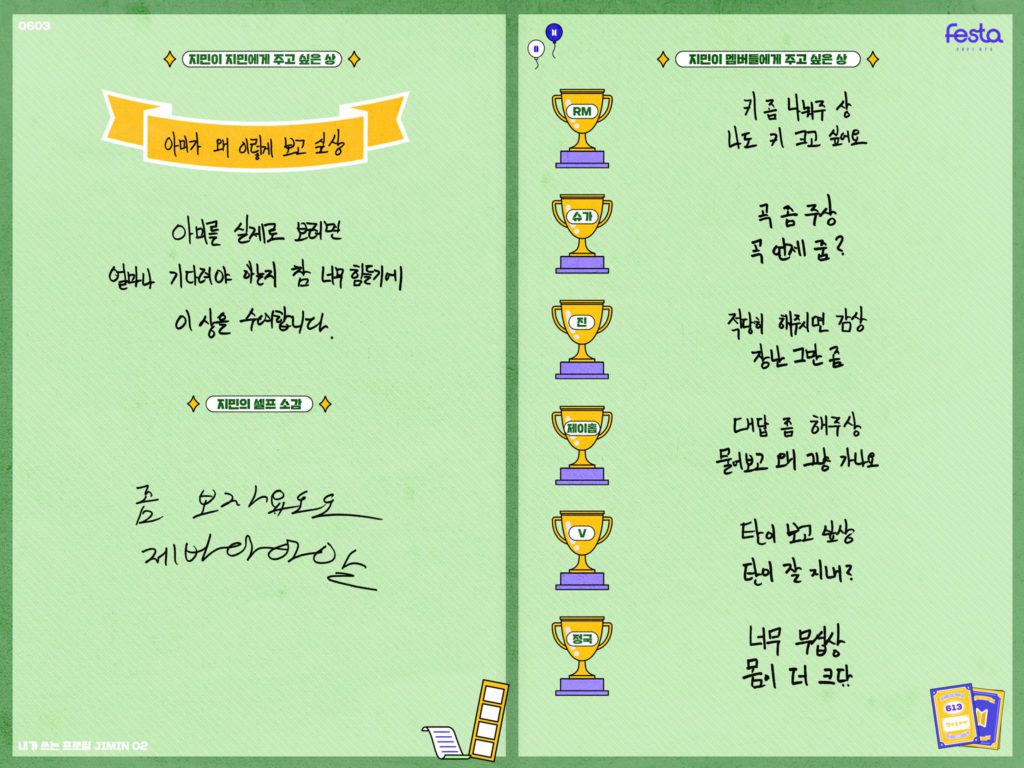 0603
지민이 지민에게 주고 싶은 상
아미가 왜 이렇게 보고 싶상
아미를 실제로 보려면
얼마나 기다려야 하는지 참 너무 힘들기에
이 상을 수여합니다.
지민의 셀프 소감
좀 보자요오오
제바아아아알
내가 쓰는 프로필 JIMIN 02
festa
2021 BTS
지민이 멤버들에게 주고 싶은 상
RM
키 좀 나눠주 상
나도 키 크고 싶어요
슈가
곡 좀 주상
곡 언제 줌?
진
적당히 해주시면 감상
장난 그만 좀
제이홉
대답 좀 해주상
물어보고 왜 그냥 가나요
V
탄이 보고 싶상
탄이 잘 지내?
정국
너무 무섭상
몸이 더 크다..
613